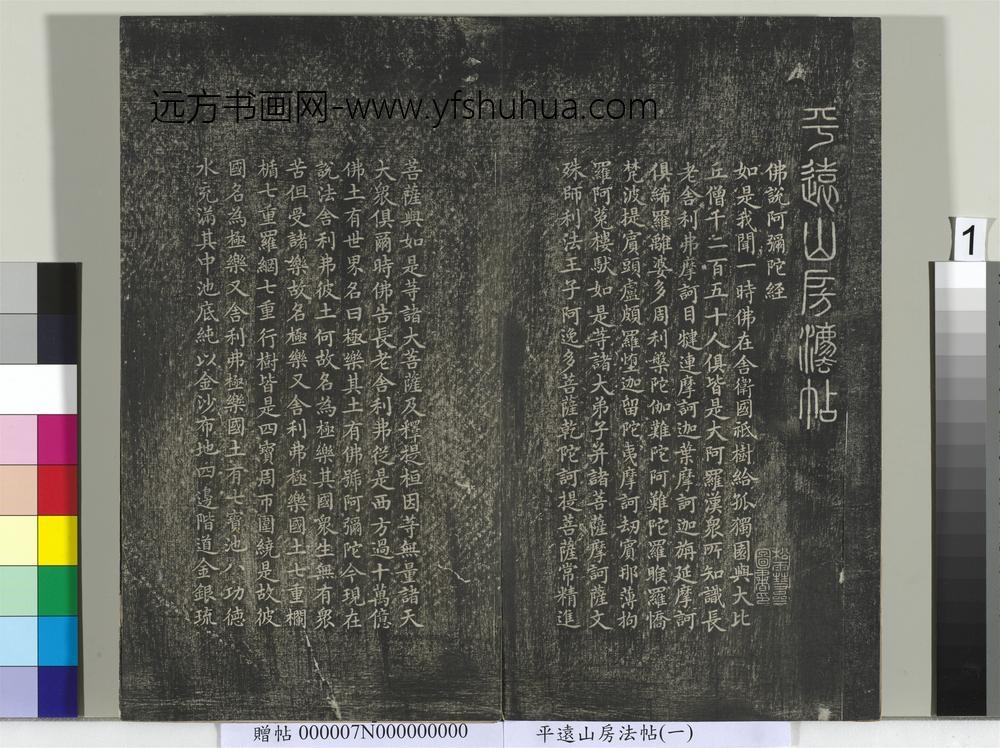 远方书画网-www.yfshuhua.com
平遠山房法帖
佛說阿彌陀経
如是我聞一時佛在舍衛國祇樹給孤獨園與大比
丘僧千二百五十人俱皆是大阿羅漢衆所知識長
老舍利弗摩訶目犍連摩訶迦葉摩訶迦旃延摩訶
俱絺羅離婆多周利槃陀伽難陀阿難陀羅睺羅憍
梵波提賓頭盧頗羅墮迦留陀夷摩訶劫賓那薄拘
羅阿㝹樓馱如是等諸大弟子并諸菩薩摩訶薩文
殊師利法王子阿逸多菩薩乾陀訶提菩薩常精進
菩薩與如是等諸大菩薩及釋提桓因等無量諸天
大衆俱爾時佛告長老舍利弗從是西方過十萬億
佛土有世界名曰極樂其土有佛號阿彌陀今現在
說法舍利弗彼土何故名為極樂其國衆生無有衆
苦但受諸樂故名極樂又舍利弗極樂國土七重欄
楯七重羅網七重行樹皆是四寶周帀圍繞是故彼
國名為極樂又舍利弗極樂國土有七寶池八功德
水充滿其中池底純以金沙布地四邊階道金銀琉
1
贈帖 000007N000000000
平遠山房法帖(一)